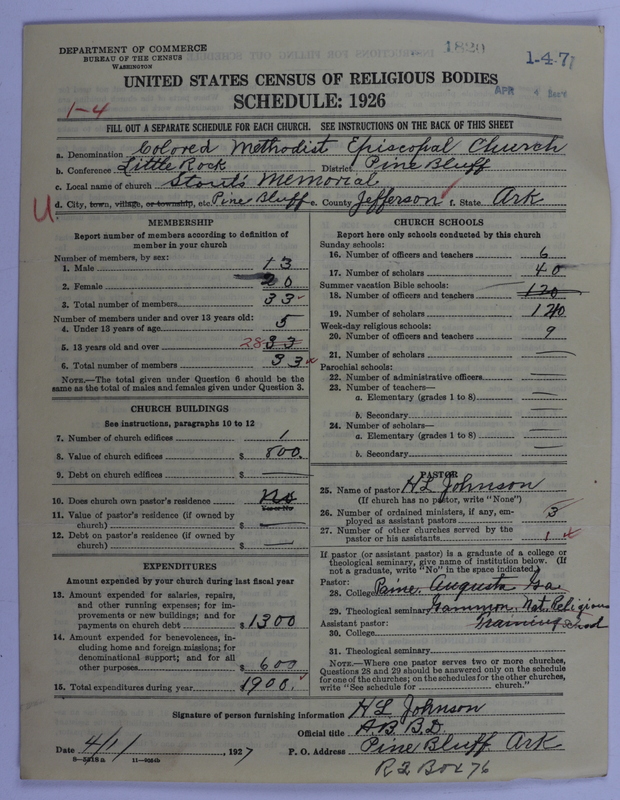 DEPARTMENT OF COMMERCE
BUREAU OF THE CENSUS
WASHINGTON
1820
1-4-71
APR 4
UNITED STATES CENSUS OF RELIGIOUS BODIES
SCHEDULE: 1926
1-4
FILL OUT A SEPARATE SCHEDULE FOR EACH CHURCH. SEE INSTRUCTIONS ON THE BACK OF THIS SHEET
a. Denomination Colored Methodist Episcopal Church
b. Conference Little Rock District Pine Bluff
c. Local name of church Memorial
U d. City, town, village, or township, etc. Pine Bluff e. County Jefferson f. State Ark
MEMBERSHIP
Report number of members according to definition of
member in your church
Number of members, by sex:
1. Male 13
2. Female 20
3. Total number of members 33
Number of members under and over 13 years old:
4. Under 13 years of age 5
5. 13 years old and over 28 33
6. Total number of members 33
NOTE.—The total given under Question 6 should be the
same as the total of males and females given under Question 3.
CHURCH BUILDINGS
See instructions, paragraphs 10 to 12
7. Number of church edifices 1
8. Value of church edifices $ 800.
9. Debt on church edifices $ —
10. Does church own pastor's residence No
Yes or No
11. Value of pastor's residence (if owned by
church) $ —
12. Debt on pastor's residence (if owned by
church) $ —
EXPENDITURES
Amount expended by your church during last fiscal year
13. Amount expended for salaries, repairs,
and other running expenses; for im-
provements or new buildings; and for
payments on church debt $ 1300
14. Amount expended for benevolences, in-
cluding home and foreign missions; for
denominational support; and for all
other purposes $ 600
15. Total expenditures during year $ 1900.
CHURCH SCHOOLS
Report here only schools conducted by this church
Sunday schools:
16. Number of officers and teachers 6
17. Number of scholars 40
Summer vacation Bible schools:
18. Number of officers and teachers 120
19. Number of scholars 120
Week-day religious schools:
20. Number of officers and teachers 9
21. Number of scholars —
Parochial schools:
22. Number of administrative officers —
23. Number of teachers—
a. Elementary (grades 1 to 8) —
b. Secondary —
24. Number of scholars—
a. Elementary (grades 1 to 8) —
b. Secondary —
PASTOR
25. Name of pastor H L Johnson
(If church has no pastor, write "None")
26. Number of ordained ministers, if any, em-
ployed as assistant pastors 3
27. Number of other churches served by the
pastor or his assistants 1
If pastor (or assistant pastor) is a graduate of a college or
theological seminary, give name of institution below. (If
not a graduate, write "No" in the space indicated)
Pastor:
28. College Paine, Augusta Ga
29. Theological seminary Gammon, Nat. Religious
Assistant pastor: Training School
30. College
31. Theological seminary
NOTE.—Where one pastor serves two or more churches,
Questions 28 and 29 should be answered only on the schedule
for one of the churches; on the schedules for the other churches,
write "See schedule for church."
Signature of person furnishing information H L Johnson
Official title A.B. B.D.
Date 4/1, 1927 P. O. Address Pine Bluff Ark
11—9054b
R 2 Box 76